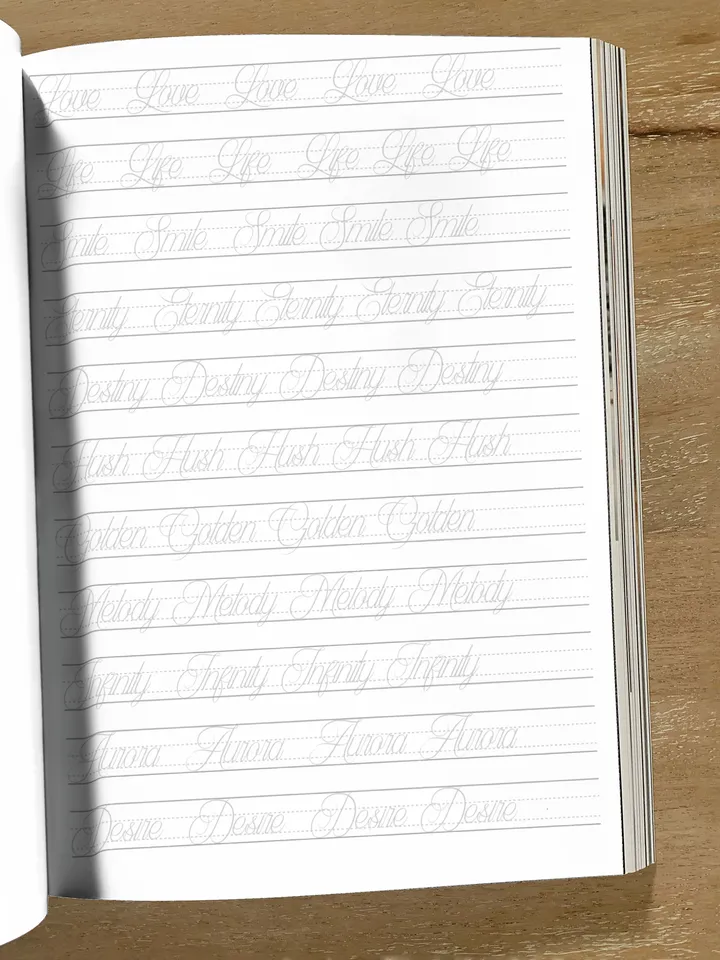 Love Love Love Love Love
Life Life Life Life Life Life
Smile Smile Smile Smile Smile
Eternity Eternity Eternity Eternity Eternity
Destiny Destiny Destiny Destiny
Hush Hush Hush Hush Hush
Golden Golden Golden Golden
Melody Melody Melody Melody
Infinity Infinity Infinity Infinity
Aurora Aurora Aurora Aurora
Desire Desire Desire Desire